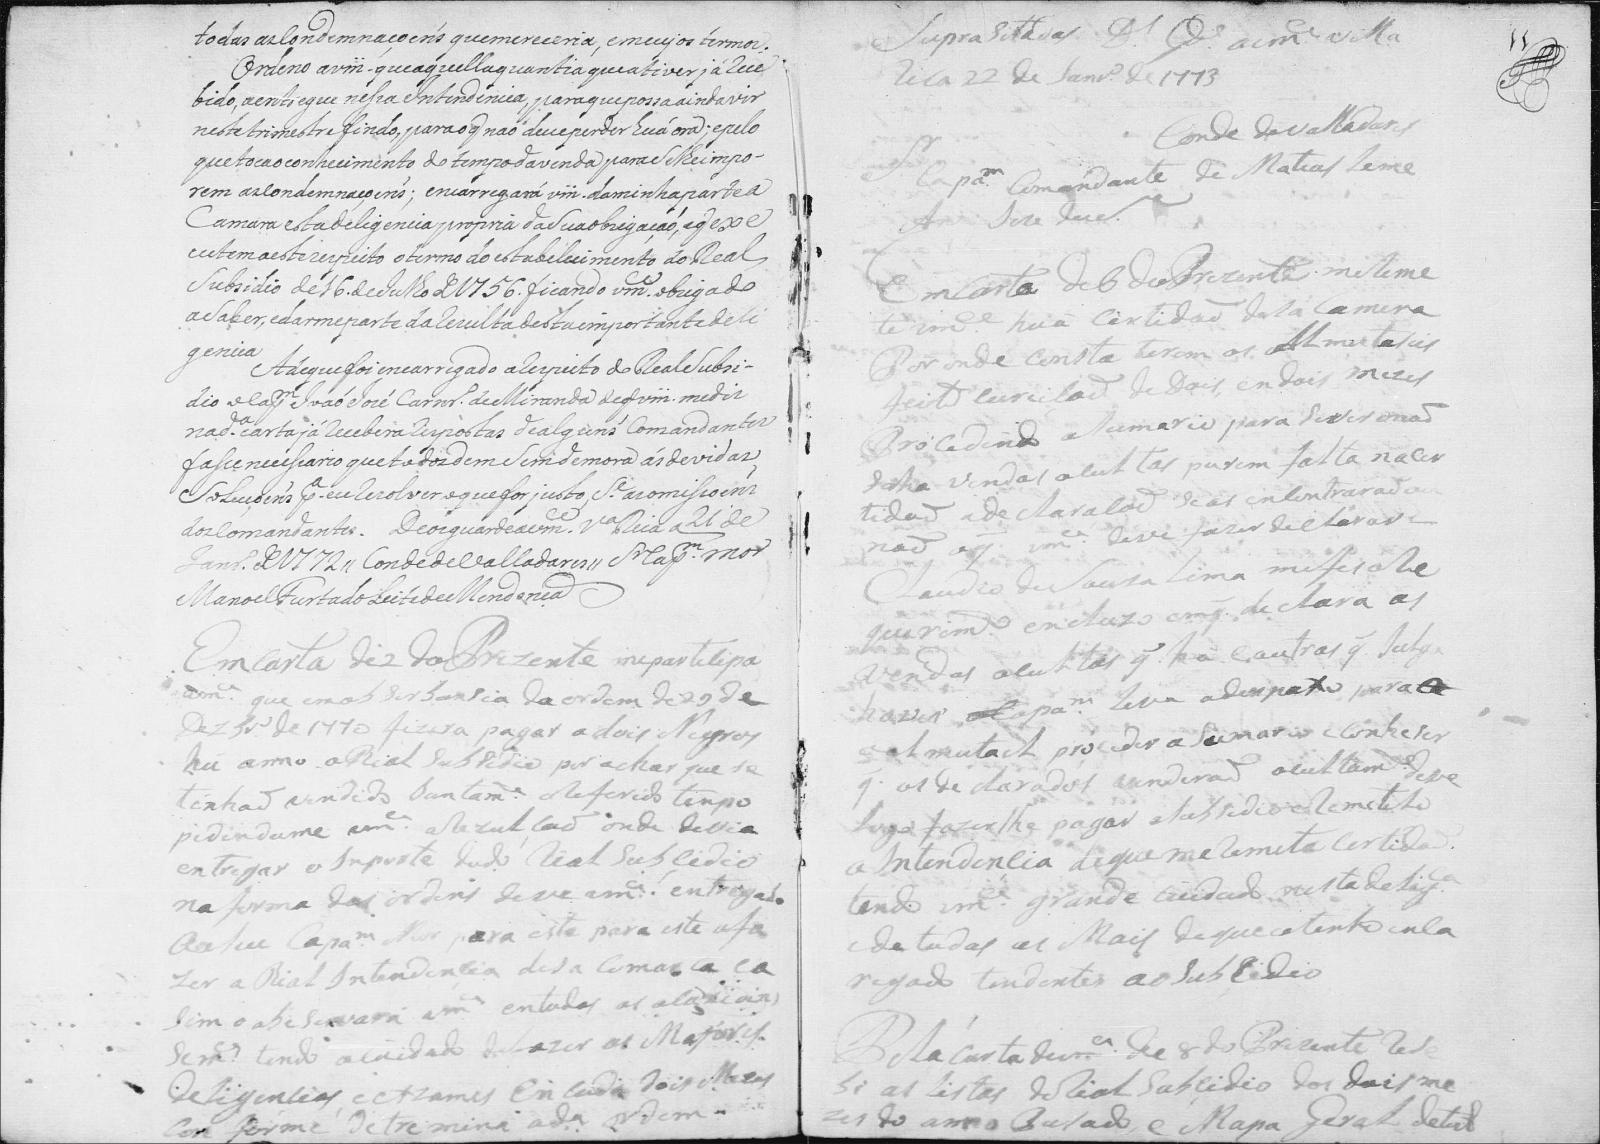 todas as Condemnaçoens que mereceria, em cujos termos.
Ordeno a vm. que aquella quantia que ativer já rece
bido, a entregue nessa Intendencia, para que possa ainda vir
neste trimestre findo, para o q̃ naõ deve perder huã ora; e pelo
que toca o conhecimento do tempo da venda para se lhe impo-
rem as Condemnaçoens; encarregará vm. da minha parte a
Camara esta deligencia propria da sua obrigaçaõ, e q̃ exe
cutem a este respeito o termo do estabelecimento do Real
Subsidio de 16. de Julho de 1756. ficando vm.ce obrigado
a saber, e darme parte da rezulta desta importante deli
gencia
A de que foi encarregado a respeito do Real Subsi-
dio o Cap.m Joaõ José Carnr.o de Miranda de q̃ vm. me diz
na d.a carta já recebera respostas de alguns Comandantes
fasce necessario que todos dem sem demora as devidas
Soluçoens p.a eu rezolver o que for justo, Se as omissoens
dos Comandantes. Deos guarde a vm.ce V.a Rica a 21 de
Janr.o de 1772 // Conde de Valladares // S.r Cap.m mor
Manoel Furtado Leite de Mendonça
Em Carta de 2 do Prezente me partecipa
vm.ce que em obserbansia da ordem de 29 de
Dezbr.o de 1770 fizera pagar a dois Negros
hũ anno o Rial Subsidio por achar que se
tinhaõ vendido o referido tempo
pidindume vm.ce a Rezulçaõ onde devia
entregar o Inporte dudo Rial Subsidio
na forma das ordens deve vm.ce entregalo
Capa.m Mor para este para este o fa
zer a Rial Intendencia desa Comarca e a
sim o abeservará vm.ce entodas as
sem.es tendo o cuidado de fazer as Majores
deligencias e Ezames Em cada dois Mezes
Conforme detremina a d.a ordem
Supra Sitadas D.s G.de a vm.ce Villa
Rica 22 de Janr.o de 1773
Conde de Valladares
S.r Capa.m Comandante de Matias Leme
An.to Joze
Em Carta de 6 do Prezente me Reme
te vm.ce huã Certidaõ da Camera
Por onde consta terem os Almutasés
feito de dois, en dois mezes
Procedendo a Sumario para se ver onaõ
doha vendas ocultas purem falta na cer
tidaõ a declaralaõ se as encontraraõ ou
naõ o q̃ vm.ce deve fazer declarar
Claudio de Souza Lima me fes o Re
querim.to encluzo em q̃ declara as
vendas ocultas q̃ ha e outras q̃ Julga
haver o Capa.m leva o despaxo para
o Almutacel proceder a Sumario e Conheser
q̃ os declarados venderaõ ocultam.te deve
logo fazerlhe pagar o Subsidio e Remetelo
a Intendencia de que me Remeta Certidaõ
tendo vm.ce grande cuidado nesta delig.ca
e de tudas as Mais de que o tenho enca
regado tendentes ao Subsidio
Pela Carta de vm.ce de 8 do Prezente Rese
bi as listas do Rial Subsidio dos dois me
zes do anno Pasado, e Mapa Geral de tud